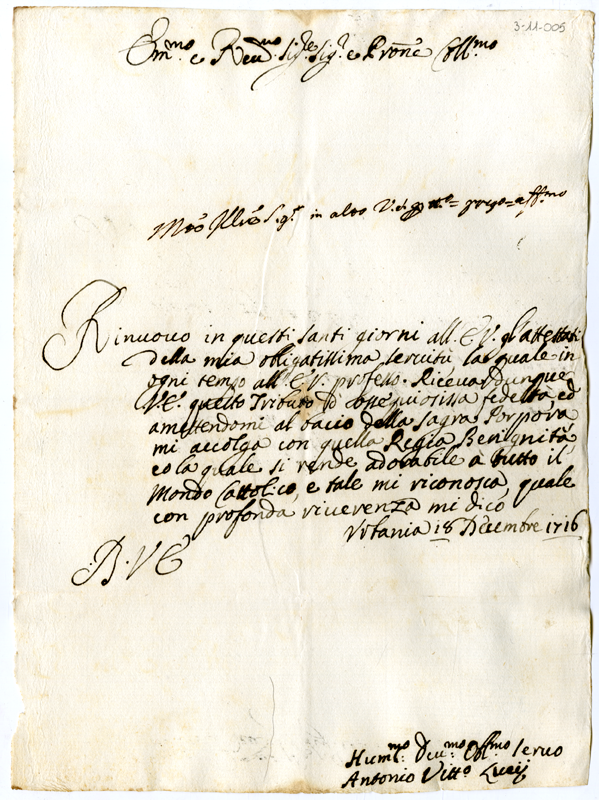 3-11-005
Em.mo e Reu.mo Sig.re Sig.r e Pron.e Coll.mo
Mto Illre Sigr in alto = = aff.mo
Rinuouo in questi santi giorni all. E.V. gl'attestati
della mia obligatissima seruitù la quale in
ogni tempo all. E.V. professo. Riceua dunque
V.E. questo Tributo di ossequiosissa fedeltà ed
amettendomi al bacio della sagra Porpora
mi accolga con quella Regia Benignità
co la quale si rende adorabile à tutto il
Mondo Cattolico, e tale mi riconosca, quale
con profonda riuerenza mi dico
18 Dicembre 1716
.B. V E
Hum.mo Deu.mo Obl.mo seruo
Antonio Vitt.o Lucij